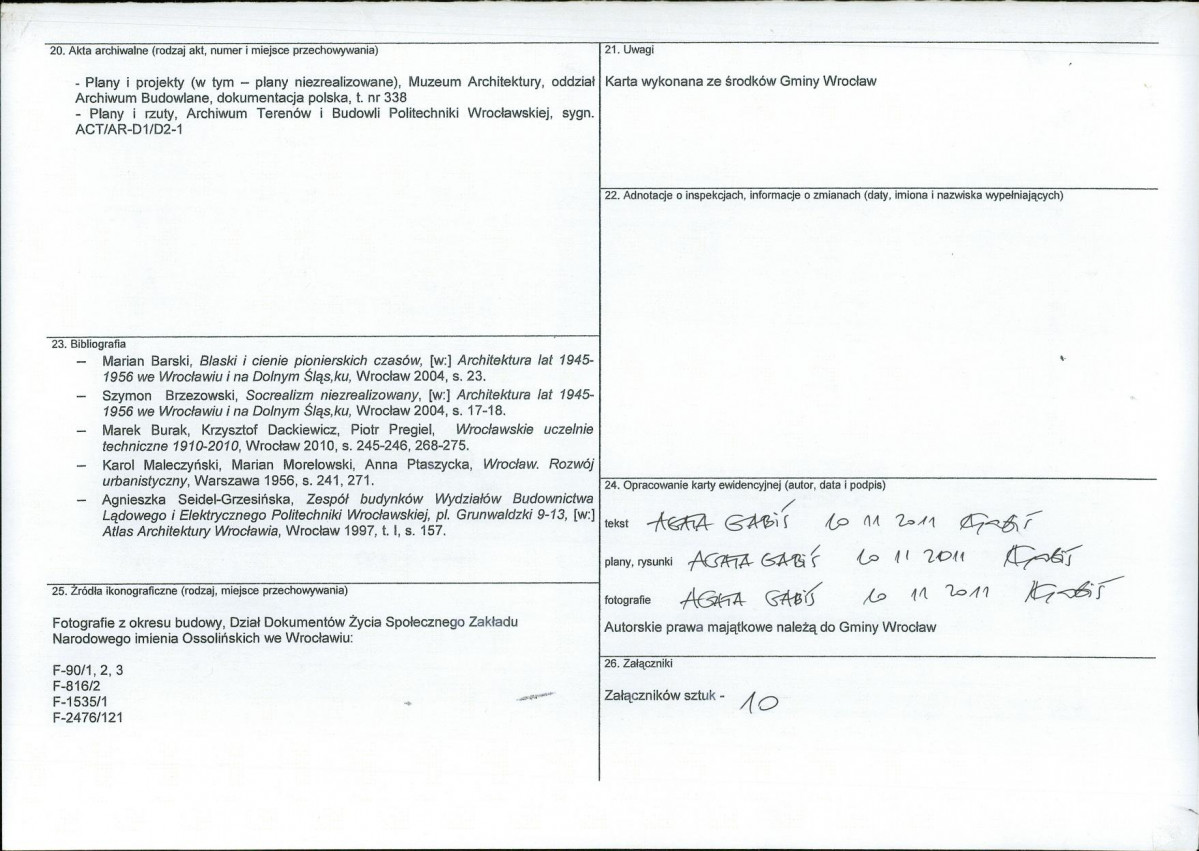 20. Akta archiwalne (rodzaj akt, numer i miejsce przechowywania)
- Plany i projekty (w tym – plany niezrealizowane), Muzeum Architektury, oddział
Archiwum Budowlane, dokumentacja polska, t. nr 338
- Plany i rzuty, Archiwum Terenów i Budowli Politechniki Wrocławskiej, sygn.
ACT/AR-D1/D2-1
21. Uwagi
Karta wykonana ze środków Gminy Wrocław
22. Adnotacje o inspekcjach, informacje o zmianach (daty, imiona i nazwiska wypełniających)
23. Bibliografia
– Marian Barski, Blaski i cienie pionierskich czasów, [w:] Architektura lat 1945-
1956 we Wrocławiu i na Dolnym Śląs,ku, Wrocław 2004, s. 23.
– Szymon Brzezowski, Socrealizm niezrealizowany, [w:] Architektura lat 1945-
1956 we Wrocławiu i na Dolnym Śląs,ku, Wrocław 2004, s. 17-18.
– Marek Burak, Krzysztof Dackiewicz, Piotr Pregiel, Wrocławskie uczelnie
techniczne 1910-2010, Wrocław 2010, s. 245-246, 268-275.
– Karol Maleczyński, Marian Morelowski, Anna Ptaszycka, Wrocław. Rozwój
urbanistyczny, Warszawa 1956, s. 241, 271.
– Agnieszka Seidel-Grzesińska, Zespół budynków Wydziałów Budownictwa
Lądowego i Elektrycznego Politechniki Wrocławskiej, pl. Grunwaldzki 9-13, [w:]
Atlas Architektury Wrocławia, Wrocław 1997, t. I, s. 157.
24. Opracowanie karty ewidencyjnej (autor, data i podpis)
tekst AGATA GABIŚ 10 11 2011 AGabiś
plany, rysunki AGATA GABIŚ 10 11 2011 AGabiś
fotografie AGATA GABIŚ 10 11 2011 AGabiś
Autorskie prawa majątkowe należą do Gminy Wrocław
25. Źródła ikonograficzne (rodzaj, miejsce przechowywania)
Fotografie z okresu budowy, Dział Dokumentów Życia Społecznego Zakładu
Narodowego imienia Ossolińskich we Wrocławiu:
F-90/1, 2, 3
F-816/2
F-1535/1
F-2476/121
26. Załączniki
Załączników sztuk - 10